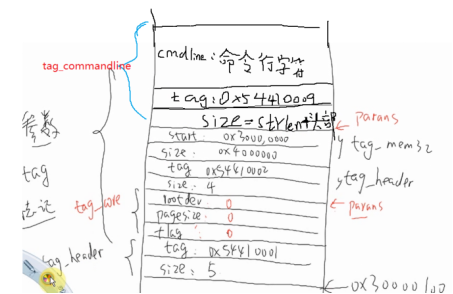 cmdline: 命令行字符
tag_commandline
tag: 0x54410009
size=strlen+头部
params
参数
start: 0x3000,0000
size: 0x4000000
tag_mem32
tag 0x54410002
tag
size: 4
tag_header
标记
tag_core
rootdev 0
params
pagesize: 0
flag: 0
tag_header
tag: 0x54410001
size: 5
0x30000100